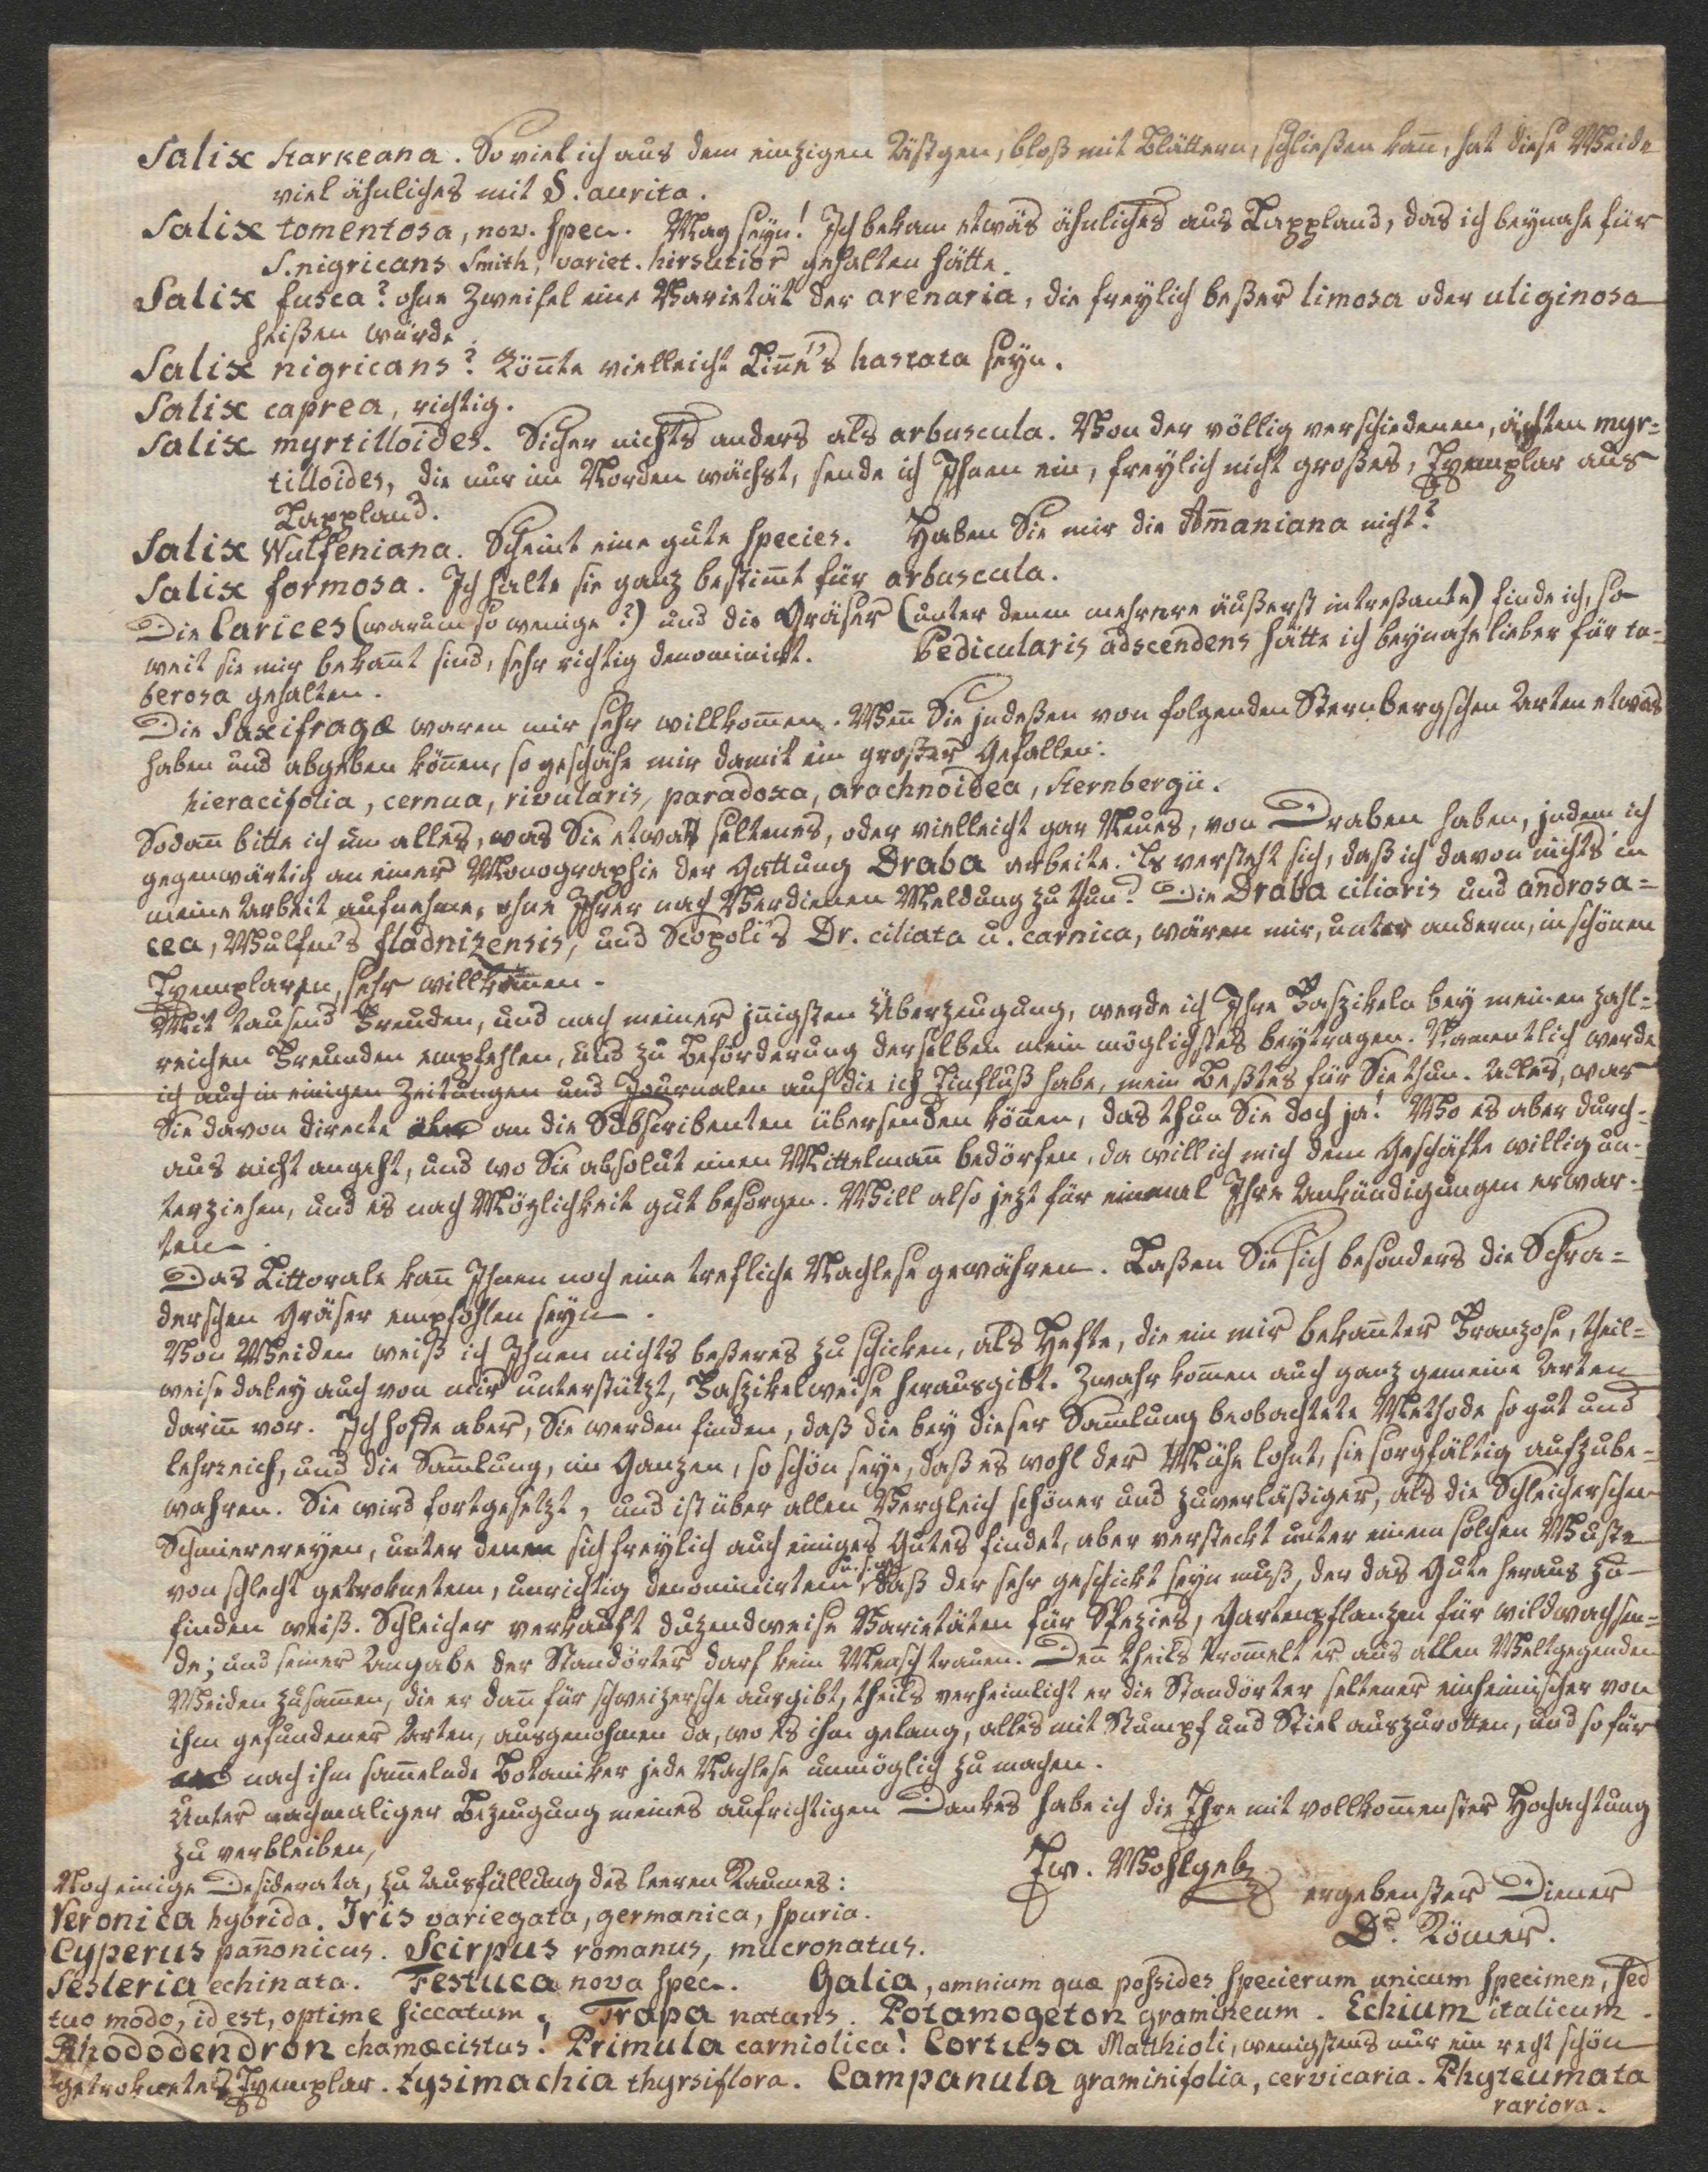 Salix Starkeana. So viel ich aus dem einzigen Ästgen, bloß mit Blättern, schließen kann, hat diese Weide
viel ähnliches mit S. aurita.
Salix tomentosa, nov. spec. Mag seyn! Ich bekam etwas ähnliches aus Lappland, das ich beynahe für
S. nigricans Smith, variet. hirsutior gehalten hätte.
Salix fusca? ohne Zweifel eine Varietät der arenaria, die freylich beßer limosa oder uliginosa
heißen würde.
Salix nigricans? Könnte vielleicht Linné's hastata seyn.
Salix caprea, richtig.
Salix myrtilloides. Sicher nichts anders als arbuscula. Von der völlig verschiedenen, ächten myr=
tilloides, die nur im Norden wächst, sende ich Ihnen ein, freylich nicht großes, Exemplar aus
Lappland.
Salix Wulfeniana. Scheint eine gute Species. Haben Sie mir die Ammaniana nicht?
Salix formosa. Ich halte sie ganz bestimmt für arbuscula.
Die Carices (warum so wenige?) und die Gräser (unter denen mehrere äußerst intreßante) finde ich, so
weit sie mir bekannt sind, sehr richtig denominirt. Pedicularis adscendens hätte ich beynahe lieber für tu=
berosa gehalten.
Die Saxifragæ waren mir sehr willkommen. Wenn Sie indeßen von folgenden Sternbergschen Arten etwas
haben und abgeben können, so geschähe mir damit ein großer Gefallen:
hieracifolia, cernua, rivularis, paradoxa, arachnoidea, Sternbergii.
Sodann bitte ich um alles, was Sie etwas seltenes, oder vielleicht gar Neues, von Draben haben, indem ich
gegenwärtig an einer Monographie der Gattung Draba arbeite. Es versteht sich, daß ich davon nichts in
meine Arbeit aufnehme, ohne Ihrer nach Verdienen Meldung zu thun. Die Draba ciliaris und androsa=
cea, Wulfens fladnizensis, und Scopoli's Dr. ciliata u. carnica, wären mir, unter anderm, in schönen
Exemplaren, sehr willkommen.
Mit tausend Freuden, und nach meiner innigsten Überzeugung, werde ich Ihre Faszikeln bey meinen zahl=
reichen Freunden empfehlen, und zu Beförderung derselben mein möglichstes beytragen. Namentlich werde
ich auch in einigen Zeitungen und Journalen auf die ich Einfluß habe, mein Beßtes für Sie thun. Alles, was
Sie davon directe an die Subscribenten übersenden können, das thun Sie doch ja! Wo es aber durch=
aus nicht angeht, und wo Sie absolut einen Mittelmann bedörfen, da will ich mich dem Geschäfte willig un=
terziehen, und es nach Möglichkeit gut besorgen. Will also jezt für einmal Ihre Ankündigungen erwar=
ten.
Das Littorale kann Ihnen noch eine trefliche Nachlese gewähren. Laßen Sie sich besonders die Schra=
derschen Gräser empfohlen seyn.
Von Weiden weiß ich Ihnen nichts beßeres zu schicken, als Hefte, die ein mir bekannter Franzose, theil=
weise dabey auch von mir unterstützt, Faszikelweise herausgibt. Zwahr kommen auch ganz gemeine Arten
darinn vor. Ich hoffe aber, Sie werden finden, daß die bey dieser Sammlung beobachtete Methode so gut und
lehrreich, und die Sammlung, im Ganzen, so schön seye, daß es wohl der Mühe lohnt, sie sorgfältig aufzube=
wahren. Sie wird fortgesetzt, und ist über allen Vergleich schöner und zuverläßiger, als die Schleicherschen
Schmierereyen, unter denen sich freylich auch einiges Gutes findet, aber versteckt unter einem solchen Wuste
von schlecht getroknetem, unrichtig denominirtem, daß der sehr geschickt seyn muß, der das Gute heraus zu
finden weiß. Schleicher verkauft duzendweise Varietäten für Spezies, Gartenpflanzen für wildwachsen=
de; und seiner Angabe der Standörter darf kein Mensch trauen. Denn theils trommelt er aus allen Weltgegenden
Weiden zusammen, die er dann für schweizersche ausgibt, theils verheimlicht er die Standörter seltener einheimischer von
ihm gefundener Arten, ausgenohmen da, wo es ihm gelang, alles mit Stumpf und Stiel auszurotten, und so für
nach ihm sammelnde Botaniker jede Nachlese unmöglich zu machen.
Unter nachmaliger Bezeugung meines aufrichtigen Dankes habe ich die Ehre mit vollkommenster Hochachtung
zu verbleiben,
Ew. Wohlgeb.
ergebenster Diener
Dr. Römer.
Noch einige Desiderata, zu Ausfüllung des leeren Raumes:
Veronica hybrida. Iris variegata, germanica, spuria.
Cyperus pannonicus. Scirpus romanus, mucronatus.
Sesleria echinata. Festuca nova spec. Galia, omnium quæ possides specierum unicum specimen, sed
tuo modo, id est, optime siccatum. Trapa natans. Potamogeton gramineum. Echium italicum.
Rhododendron chamæcistus! Primula carniolica! Cortusa Matthioli, wenigstens nur ein recht schön
getroknetes Exemplar. Lysimachia thyrsiflora. Campanula graminifolia, cervicaria. Phyteumata
rariora.